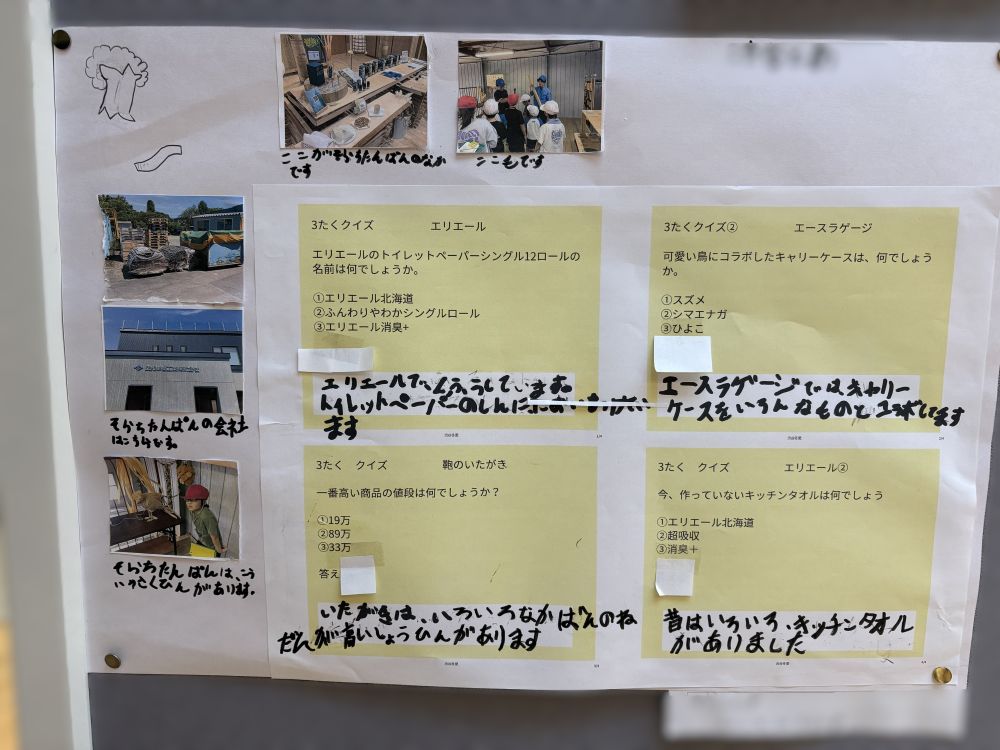 ここがそらちたんばんのなか
です
ここもです
そらちたんばんの会社
はこうゆうかんじ
そらちたんばんは、こう
いうさくひんがあります。
3たくクイズ エリエール
エリエールのトイレットペーパーシングル12ロールの
名前は何でしょうか。
①エリエール北海道
②ふんわりやわかシングルロール
③エリエール消臭+
エリエールで
トイレットペーパーのしんに
ます
1/4
3たくクイズ② エースラゲージ
可愛い鳥にコラボしたキャリーケースは、何でしょう
か。
①スズメ
②シマエナガ
③ひよこ
エースラゲージではキャリー
ケースをいろんなものとコラボしています
2/4
3たく クイズ 鞄のいたがき
一番高い商品の値段は何でしょうか？
①19万
②89万
③33万
答え
いたがきは、いろいろなかばんのね
だんが高いしょうひんがあります
3/4
3たく クイズ エリエール②
今、作っていないキッチンタオルは何でしょう
①エリエール北海道
②超吸収
③消臭＋
昔はいろいろ、キッチンタオル
がありました
4/4